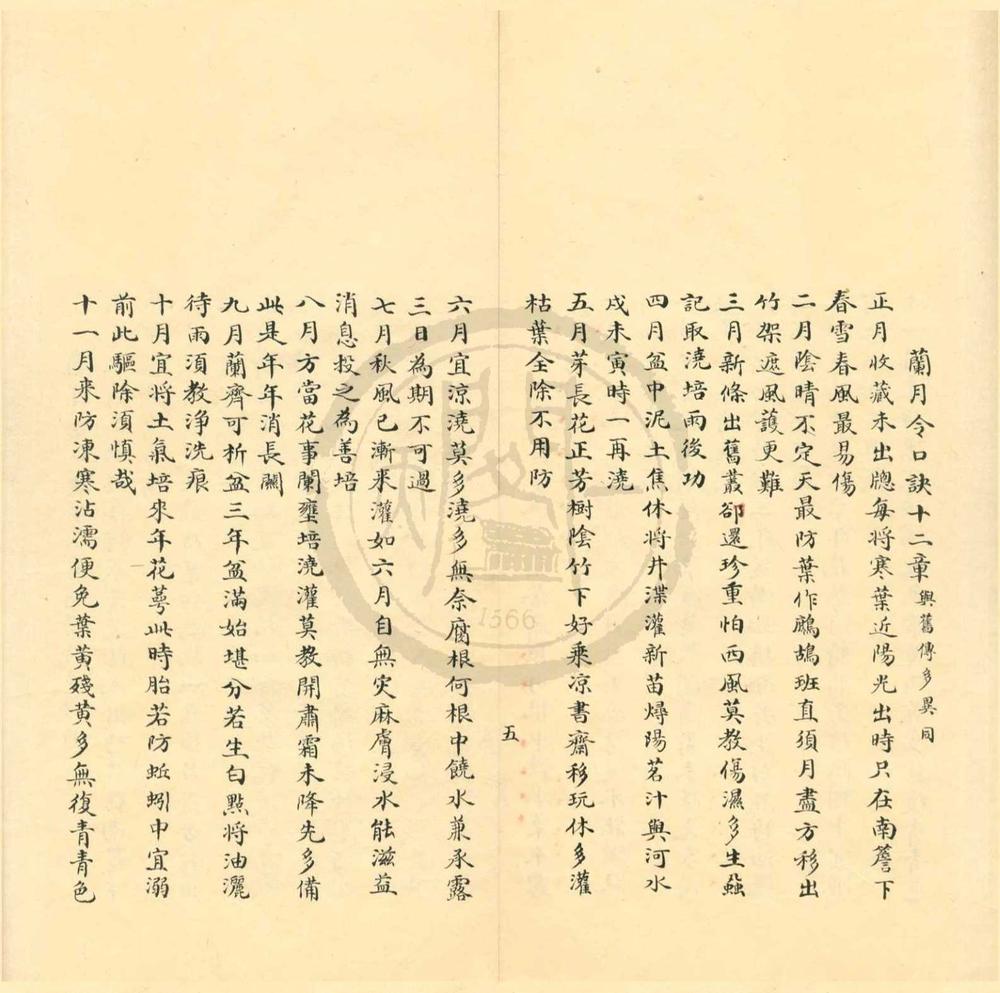 蘭月令口訣十二章與舊傳多異同
正月收藏未出牕每將寒葉近陽光出時只在南簷下
春雪春風最易傷
二月陰晴不定天最防葉作鷓鴣班直須月盡方移出
竹架遮風護更難
三月新條出舊叢卻還珍重怕西風莫教傷濕多生蝨
記取澆培雨後功
四月盆中泥土焦休將井渫灌新苗燖陽茗汁與河水
戌未寅時一再澆
五月芽長花正芳樹陰竹下好乘凉書齋移玩休多灌
枯葉全除不用防
五
六月宜涼澆莫多澆多無奈腐根何根中饒水兼承露
三日為期不可過
七月秋風已漸來灌如六月自無灾麻膚浸水能滋益
消息投之為善培
八月方當花事闌壅培澆灌莫教開肅霜未降先多備
此是年年消長關
九月蘭齊可析盆三年盆滿始堪分若生白點將油灑
待雨須教淨洗痕
十月宜將土氣培來年花蕚此時胎若防蚯蚓中宜溺
前此驅除須慎哉
十一月來防凍寒沾濡便免葉黃殘黃多無復青青色
1566